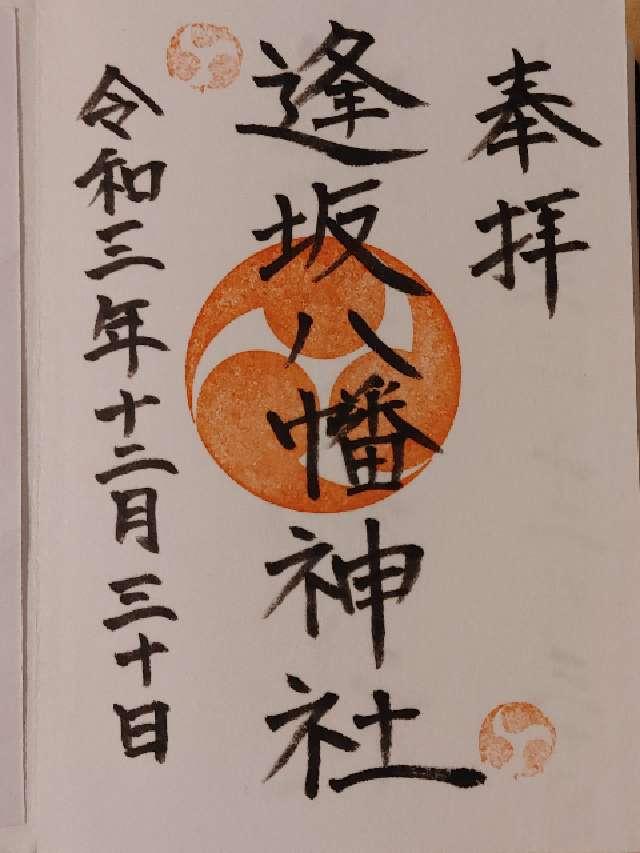 奉拝
逢坂八幡神社
令和三年十二月三十日